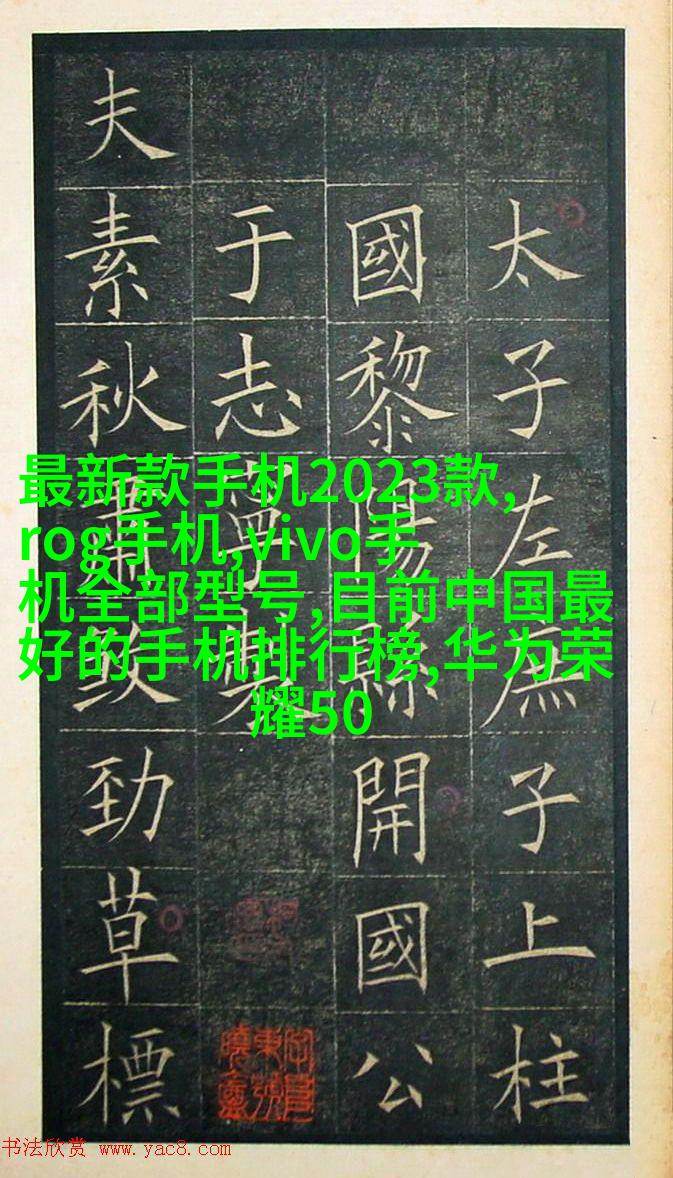 太子左庶子上柱
國黎陽縣開國公
于志寧製
夫素秋肅煞勁草標
最新款手机2023款,
rog手机,vivo手
机全部型号,目前中国最
好的手机排行榜,华为荣
耀50
书法欣赏 www.yac8.com